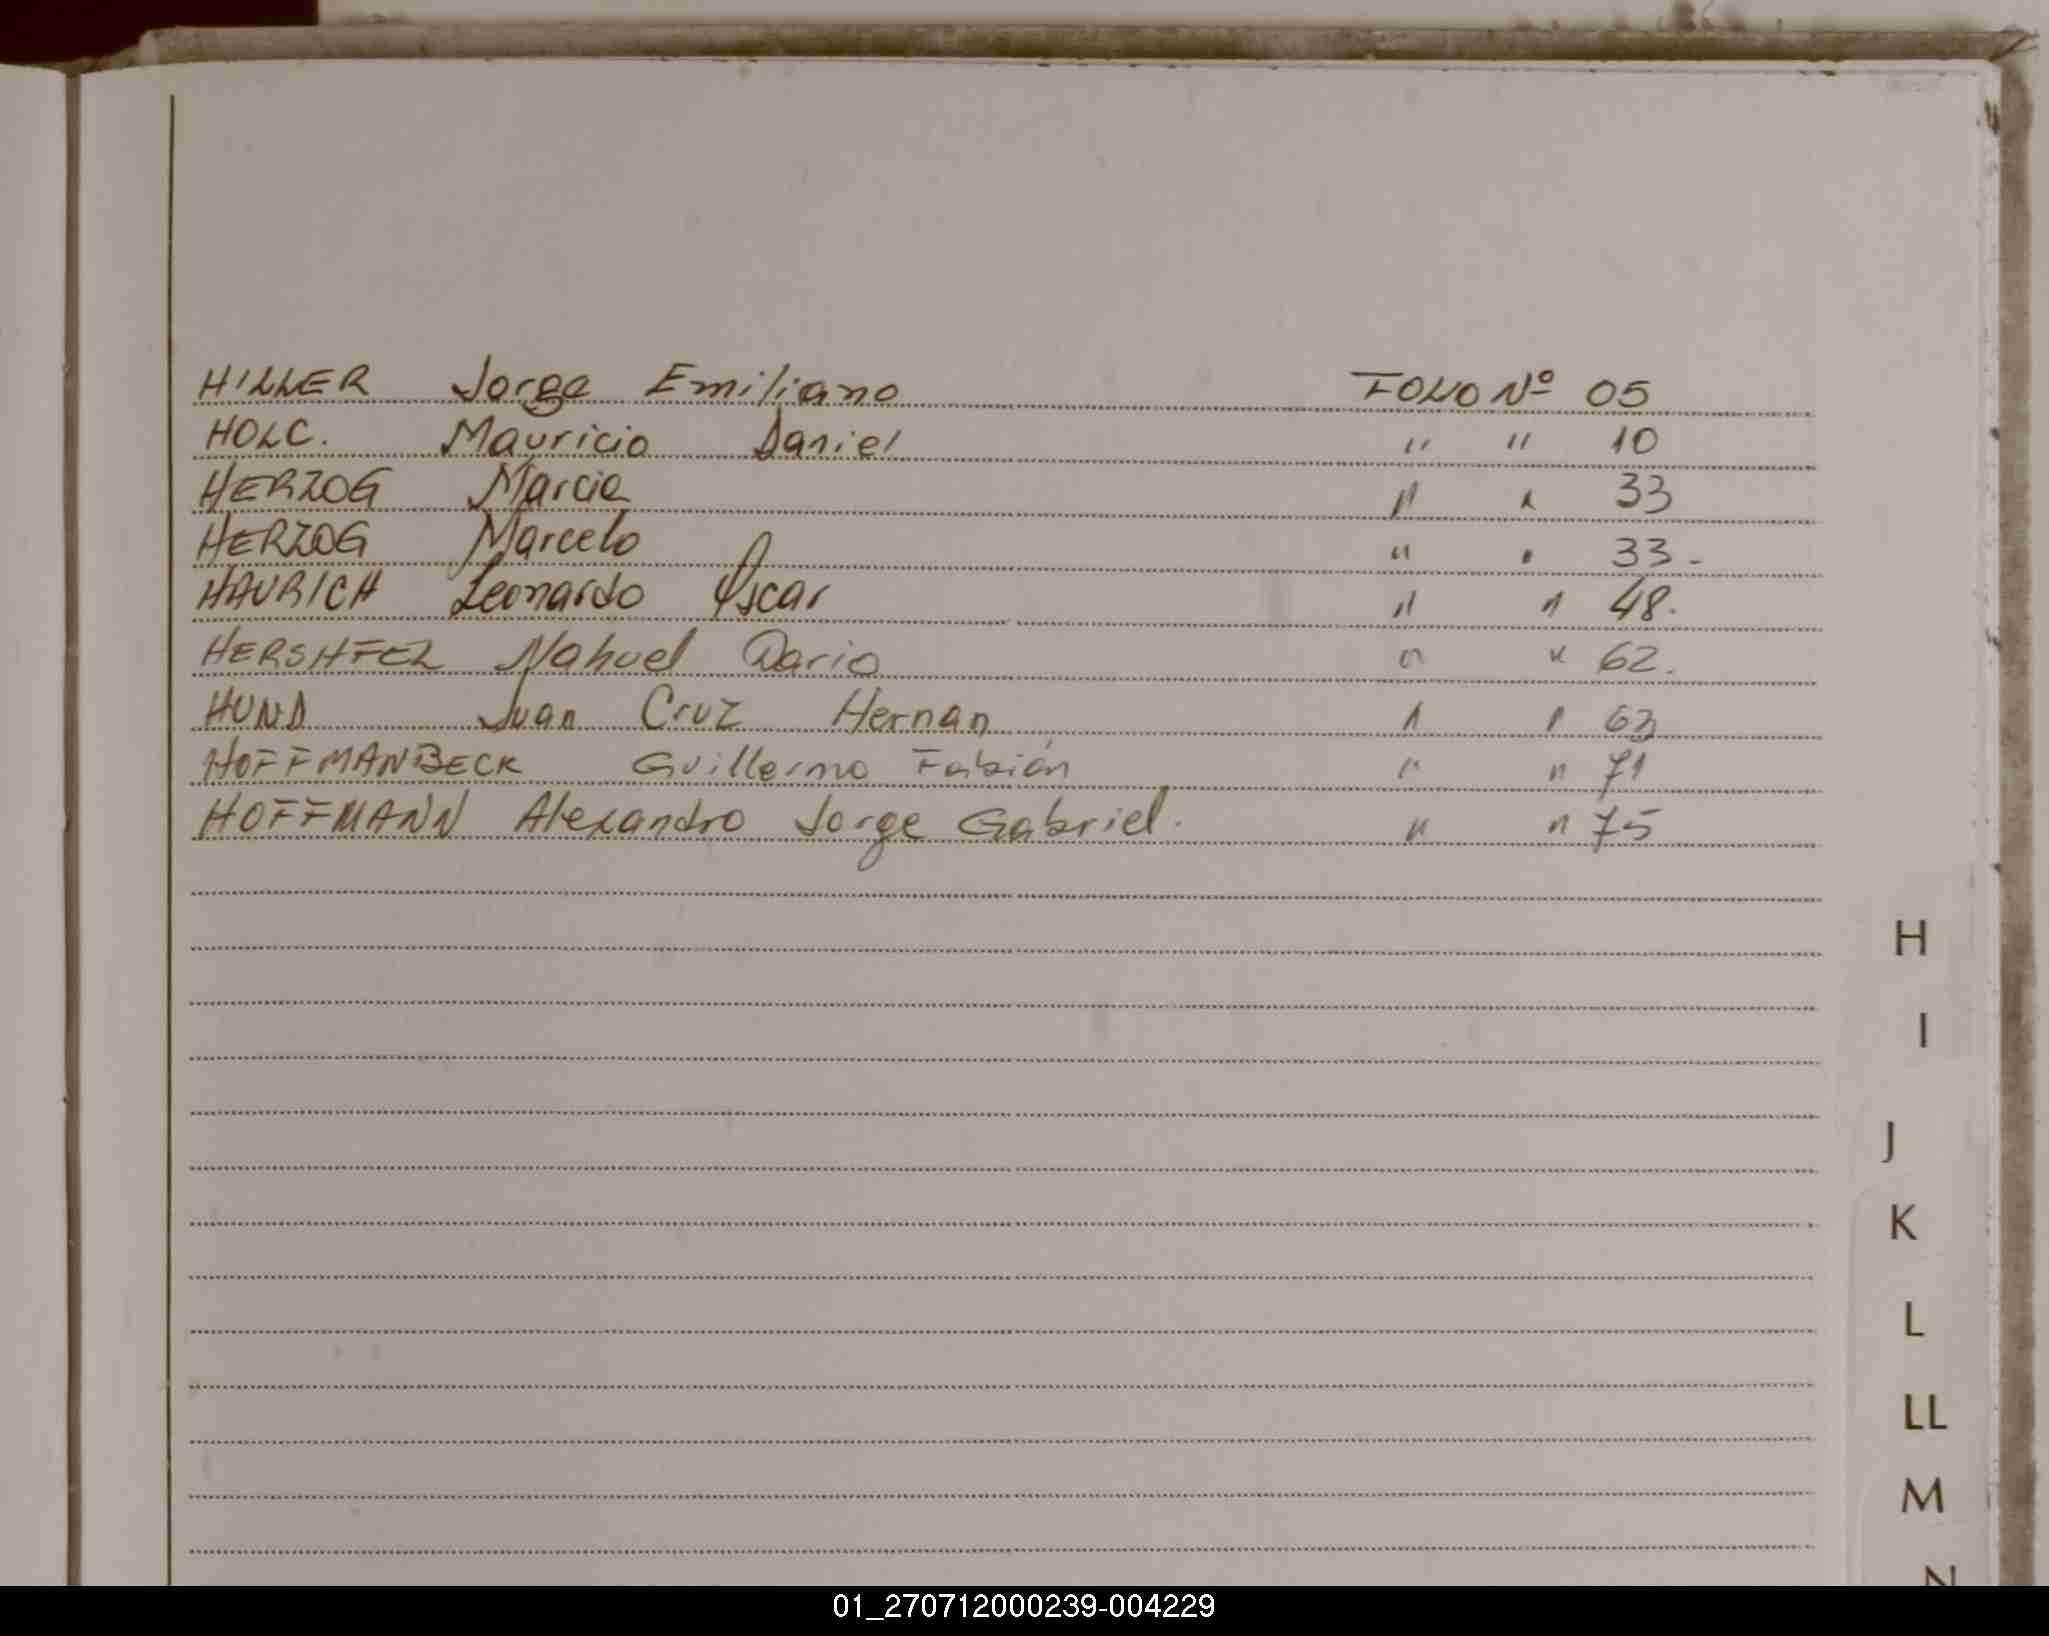 HILLER Jorge Emiliano FOLIO Nº 05
HOLC. Mauricio Daniel " " 10
HERZOG Marcia " " 33
HERZOG Marcelo " " 33 -
HAURICH Leonardo Oscar " " 48.
HERSHFEL Nahuel Dario " " 62.
HUND Juan Cruz Hernan " " 63
HOFFMANBECK Guillermo Fabián " " 71
HOFFMANN Alexandro Jorge Gabriel. " " 75
H
I
J
K
L
LL
M
N
01_270712000239-004229